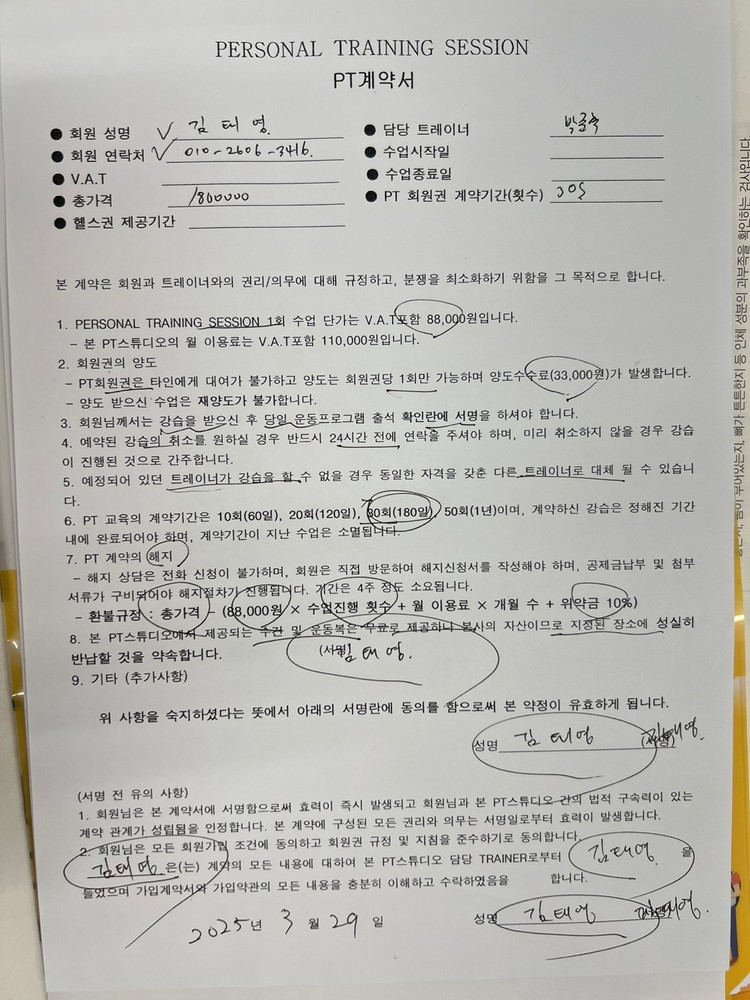 PERSONAL TRAINING SESSION
PT계약서
● 회원 성명 ✓ 김태영
● 회원 연락처 ✓ 010-2606-3416.
● V.A.T
● 총가격 1800000
● 헬스권 제공기간
● 담당 트레이너
● 수업시작일
● 수업종료일
● PT 회원권 계약기간(횟수) 30
본 계약은 회원과 트레이너와의 권리/의무에 대해 규정하고, 분쟁을 최소화하기 위함을 그 목적으로 합니다.
1. PERSONAL TRAINING SESSION 1회 수업 단가는 V.A.T포함 88,000원입니다.
- 본 PT스튜디오의 월 이용료는 V.A.T포함 110,000원입니다.
2. 회원권의 양도
- PT회원권은 타인에게 대여가 불가하고 양도는 회원권당 1회만 가능하며 양도수수료(33,000원)가 발생합니다.
- 양도 받으신 수업은 재양도가 불가합니다.
3. 회원님께서는 강습을 받으신 후 당일 운동프로그램 출석 확인란에 서명을 하셔야 합니다.
4. 예약된 강습의 취소를 원하실 경우 반드시 24시간 전에 연락을 주셔야 하며, 미리 취소하지 않을 경우 강습
이 진행된 것으로 간주합니다.
5. 예정되어 있던 트레이너가 강습을 할 수 없을 경우 동일한 자격을 갖춘 다른 트레이너로 대체 될 수 있습니
다.
6. PT 교육의 계약기간은 10회(60일), 20회(120일), 30회(180일), 50회(1년)이며, 계약하신 강습은 정해진 기간
내에 완료되어야 하며, 계약기간이 지난 수업은 소멸됩니다.
7. PT 계약의 해지
- 해지 상담은 전화 신청이 불가하며, 회원은 직접 방문하여 해지신청서를 작성해야 하며, 공제금납부 및 첨부
서류가 구비되어야 해지절차가 진행됩니다. 기간은 4주 정도 소요됩니다.
- 환불규정 : 총가격 - (88,000원 × 수업진행 횟수 + 월 이용료 × 개월 수 + 위약금 10%)
8. 본 PT스튜디오에서 제공되는 수건 및 운동복은 무료로 제공하나 본사의 자산이므로 지정된 장소에 성실히
반납할 것을 약속합니다. (서명) 김태영.
9. 기타 (추가사항)
위 사항을 숙지하셨다는 뜻에서 아래의 서명란에 동의를 함으로써 본 약정이 유효하게 됩니다.
성명 김태영 (서명) 김태영.
(서명 전 유의 사항)
1. 회원님은 본 계약서에 서명함으로써 효력이 즉시 발생되고 회원님과 본 PT스튜디오 간의 법적 구속력이 있는
계약 관계가 성립됨을 인정합니다. 본 계약에 구성된 모든 권리와 의무는 서명일로부터 효력이 발생합니다.
2. 회원님은 모든 회원가입 조건에 동의하고 회원권 규정 및 지침을 준수하기로 동의합니다.
김태영 은(는) 계약의 모든 내용에 대하여 본 PT스튜디오 담당 TRAINER로부터 김태영. 을
들었으며 가입계약서와 가입약관의 모든 내용을 충분히 이해하고 수락하였음을 합니다.
2025년 3월 29일 성명 김태영 김태영.